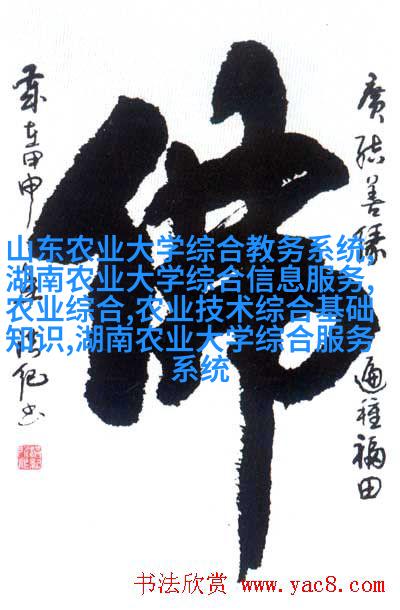 佛
廣結善緣 遍種福田
歲在甲申
山东农业大学综合教务系统,
湖南农业大学综合信息服务,
农业综合,农业技术综合基础
知识,湖南农业大学综合服务
系统
书法欣赏 www.yac8.com